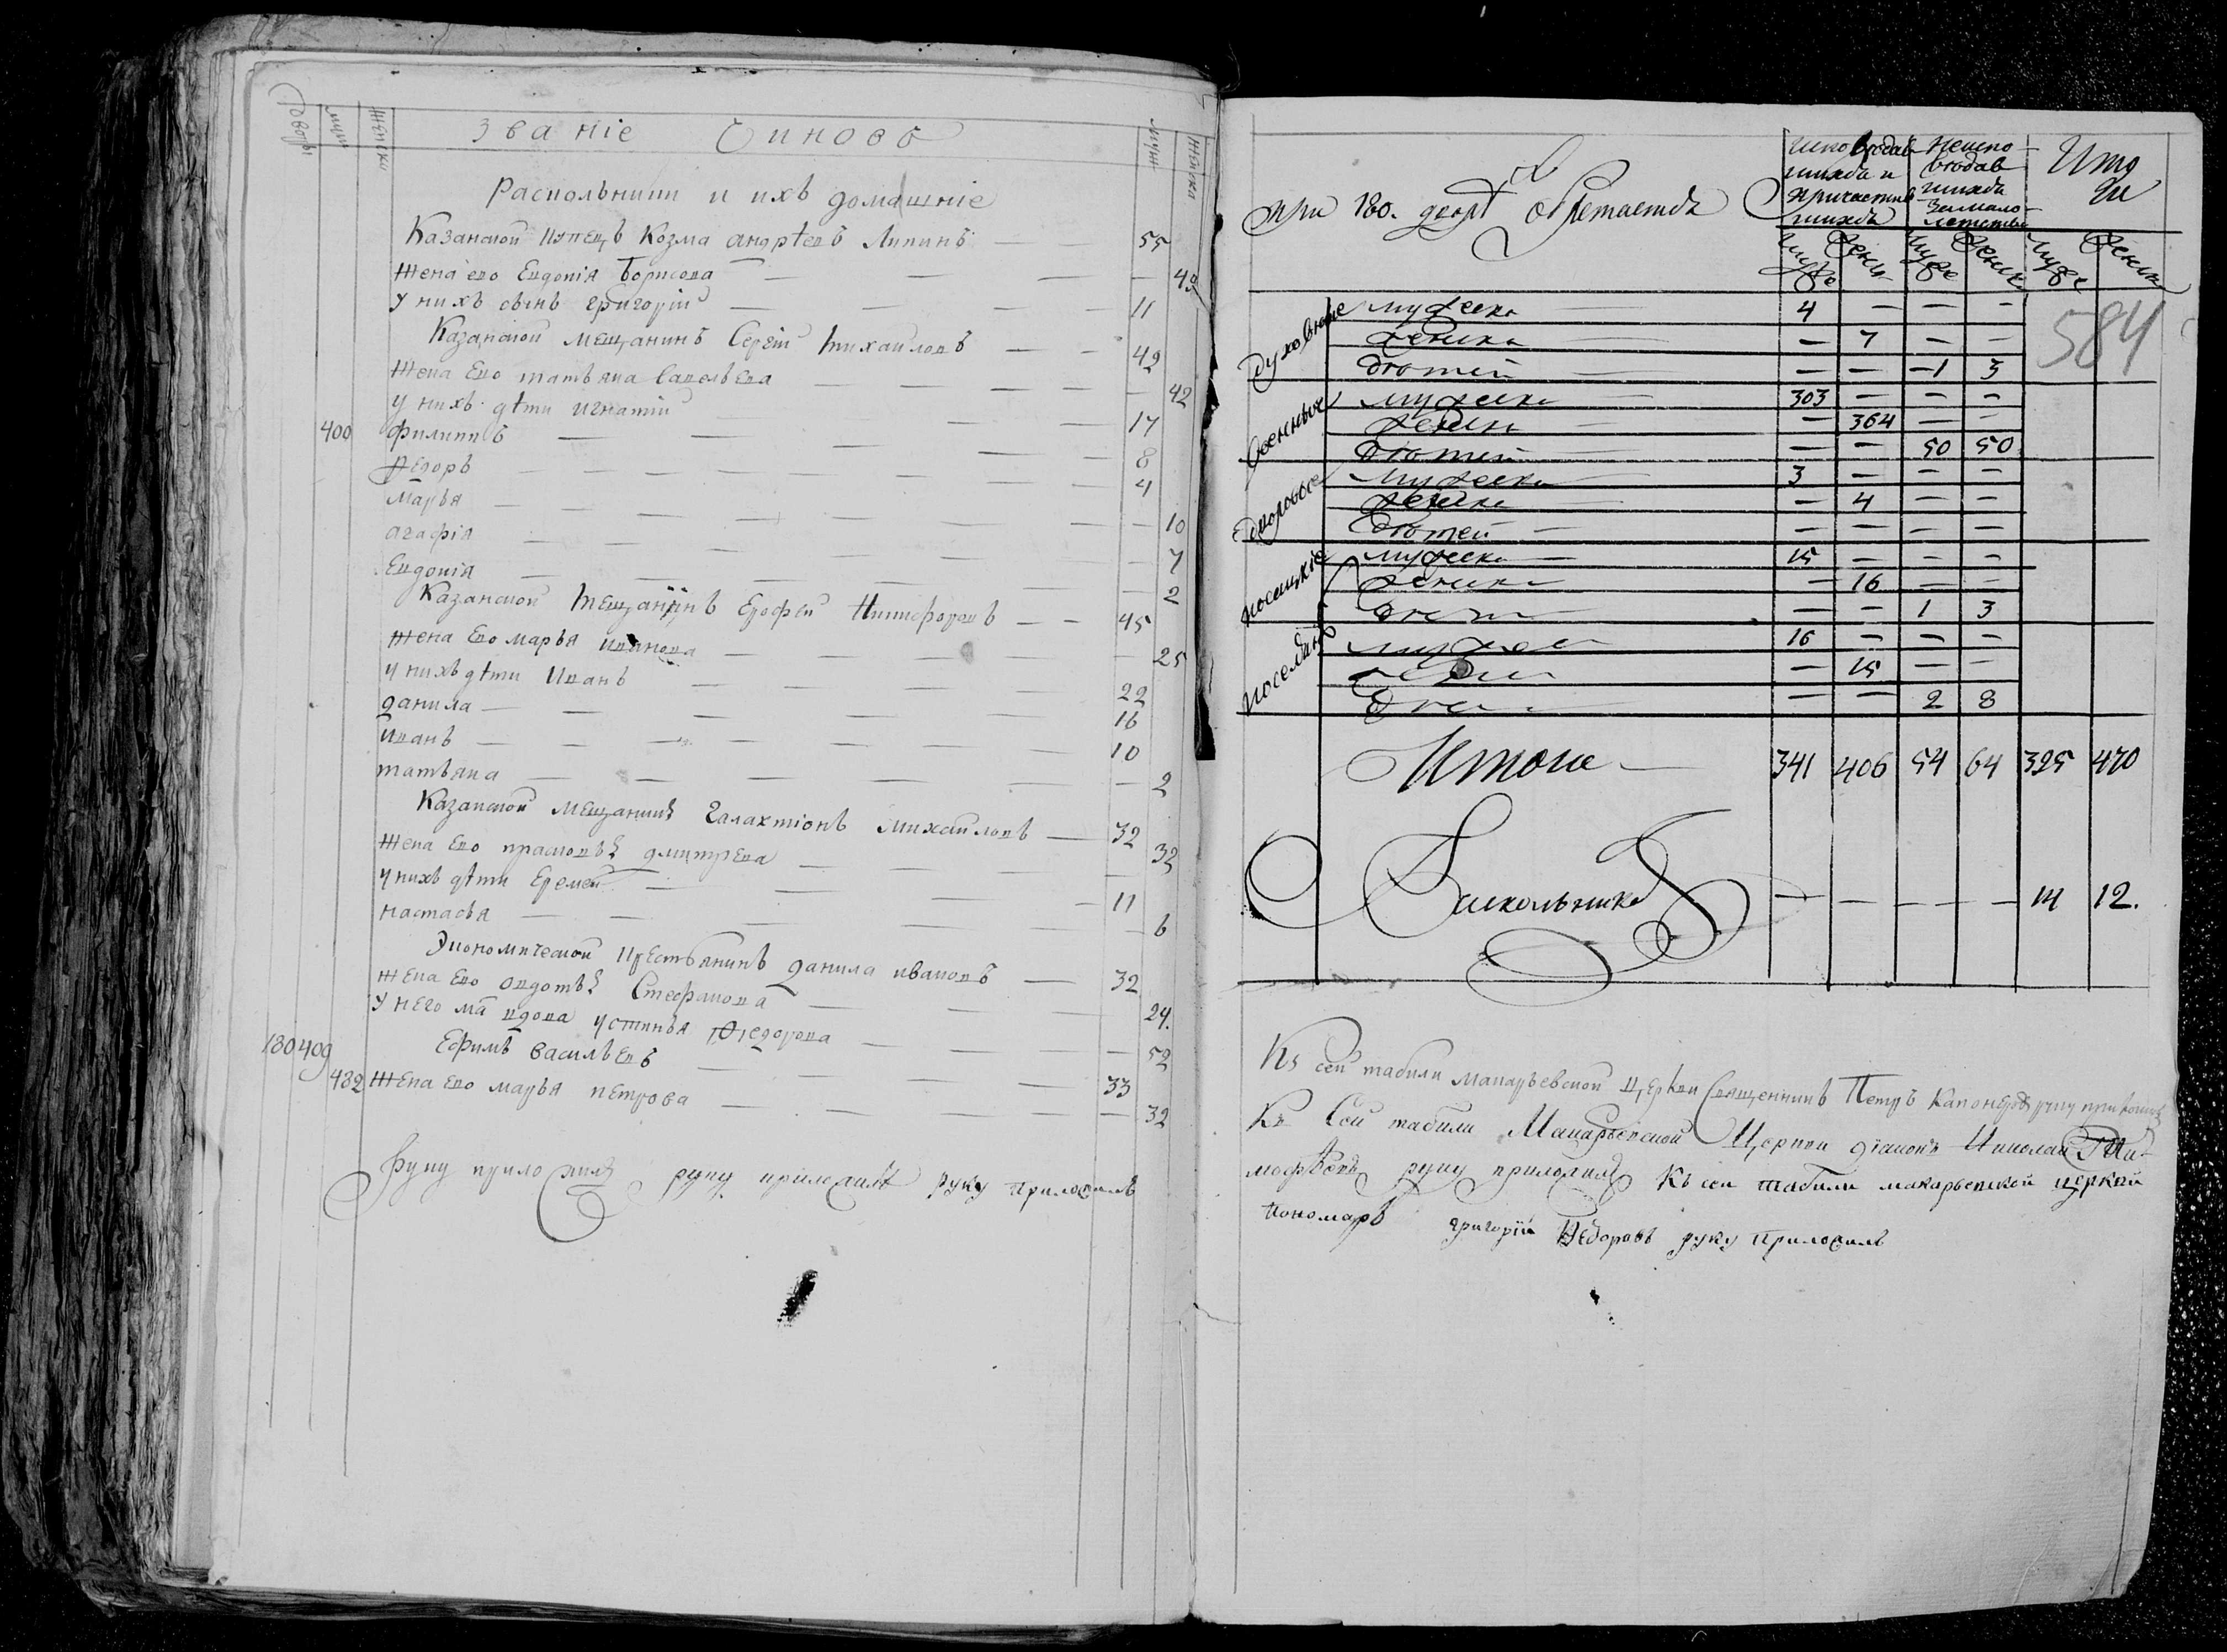 Дворы муж женск
званіе Чиновъ
муж женск
Раскольники и ихъ домашніе
Казанской купецъ Козма андрѣевъ Липинъ — — 55
жена ево Евдокія Борисова — — — — 49
у нихъ сынъ григорій — — — — 11
Казанской мещанинъ Сергѣй михайловъ — — 42
жена Ево татьяна Савельева — — — — 42
у нихъ дѣти игнатій — — — — 17
400 филиппъ — — — — 8
Ѳедоръ — — — — 4
марья — — — — 10
агафія — — — — 7
Евдокія — — — — 2
Казанской мещанинъ Ерофей Никифоровъ — — 45
жена Ево марья иванова — — — — 25
у нихъ дѣти Иванъ — — — — 22
данила — — — — 16
иванъ — — — — 10
татьяна — — — — 2
Казанской мещанинъ Галахтіонъ михайловъ — 32
жена Ево прасковья дмитрева — — — 32
у нихъ дѣти Еремей — — — — 11
настасья — — — — 6
Экономической крестьянинъ данила ивановъ — 32
жена Ево авдотья Стефанова — — — 24.
У него мать вдова устинья Ѳедорова — — — 52
180 409 Ефимъ васильевъ — — — — 33
432 жена Ево марья петрова — — — — 32
руку приложилъ руку приложилъ руку приложилъ
при 180. дворѣ обретается
исповедав
шихся и
причастив
шихся
Неиспо
ведав
шихся
за мало
летствомъ
Ито
ги
муже женск муже женск муже женск
584
духовные мужеска 4 — — —
женска — 7 — —
детей — — 1 3
военныя мужеска 303 — — —
женска — 364 — —
детей — — 50 50
дворовые мужеска 3 — — —
женска — 4 — —
детей — — — —
посацкіе мужеска 15 — — —
женска — 16 — —
детей — — 1 3
поселян мужес 16 — — —
женс — 15 — —
дете — — 2 8
Итого — 341 406 54 64 395 470
Раскольниковъ — — — — 14 12.
Къ сей табели макарьевской церкви Священникъ Петръ руку приложилъ
Къ Сей табели Макарьевской Церкви діаконъ Николай Ти
мофѣевъ руку приложилъ Къ сей табели макарьевской церкви
пономарь григорій Ѳедоровъ руку приложилъ